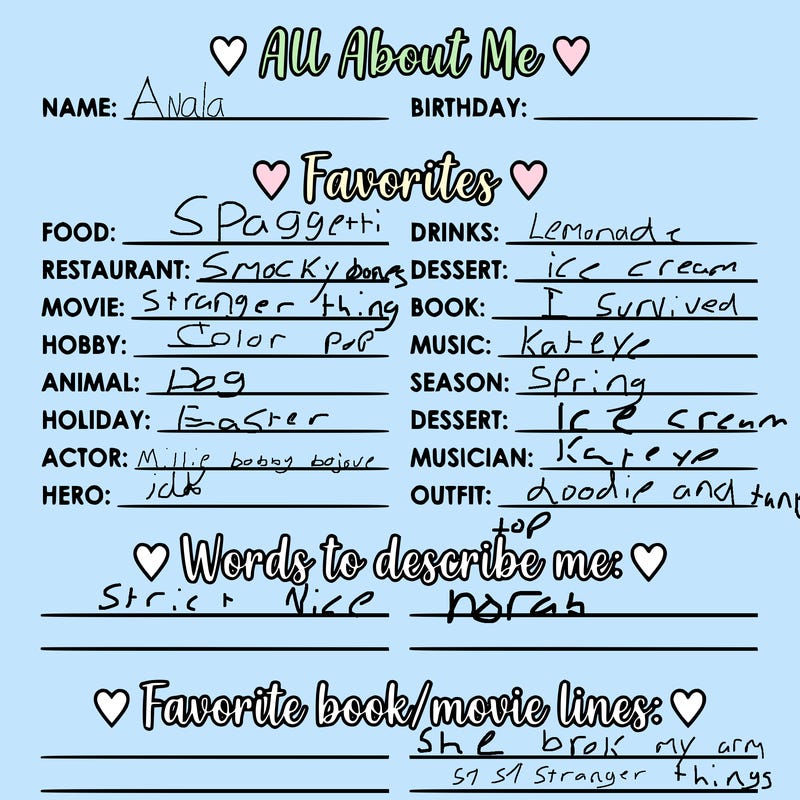 All About Me
NAME: Anala BIRTHDAY:
Favorites
FOOD: Spaggetti DRINKS: Lemonade
RESTAURANT: Smocky bones DESSERT: ice cream
MOVIE: Stranger thing BOOK: I Survived
HOBBY: Color pop MUSIC: Kateye
ANIMAL: Dog SEASON: Spring
HOLIDAY: Easter DESSERT: Ice cream
ACTOR: Millie bobby bojove MUSICIAN: Kateye
HERO: idk OUTFIT: hoodie and tank
top
Words to describe me:
Strict Nice
Favorite book/movie lines:
She brok my arm
S1 S1 Stranger things